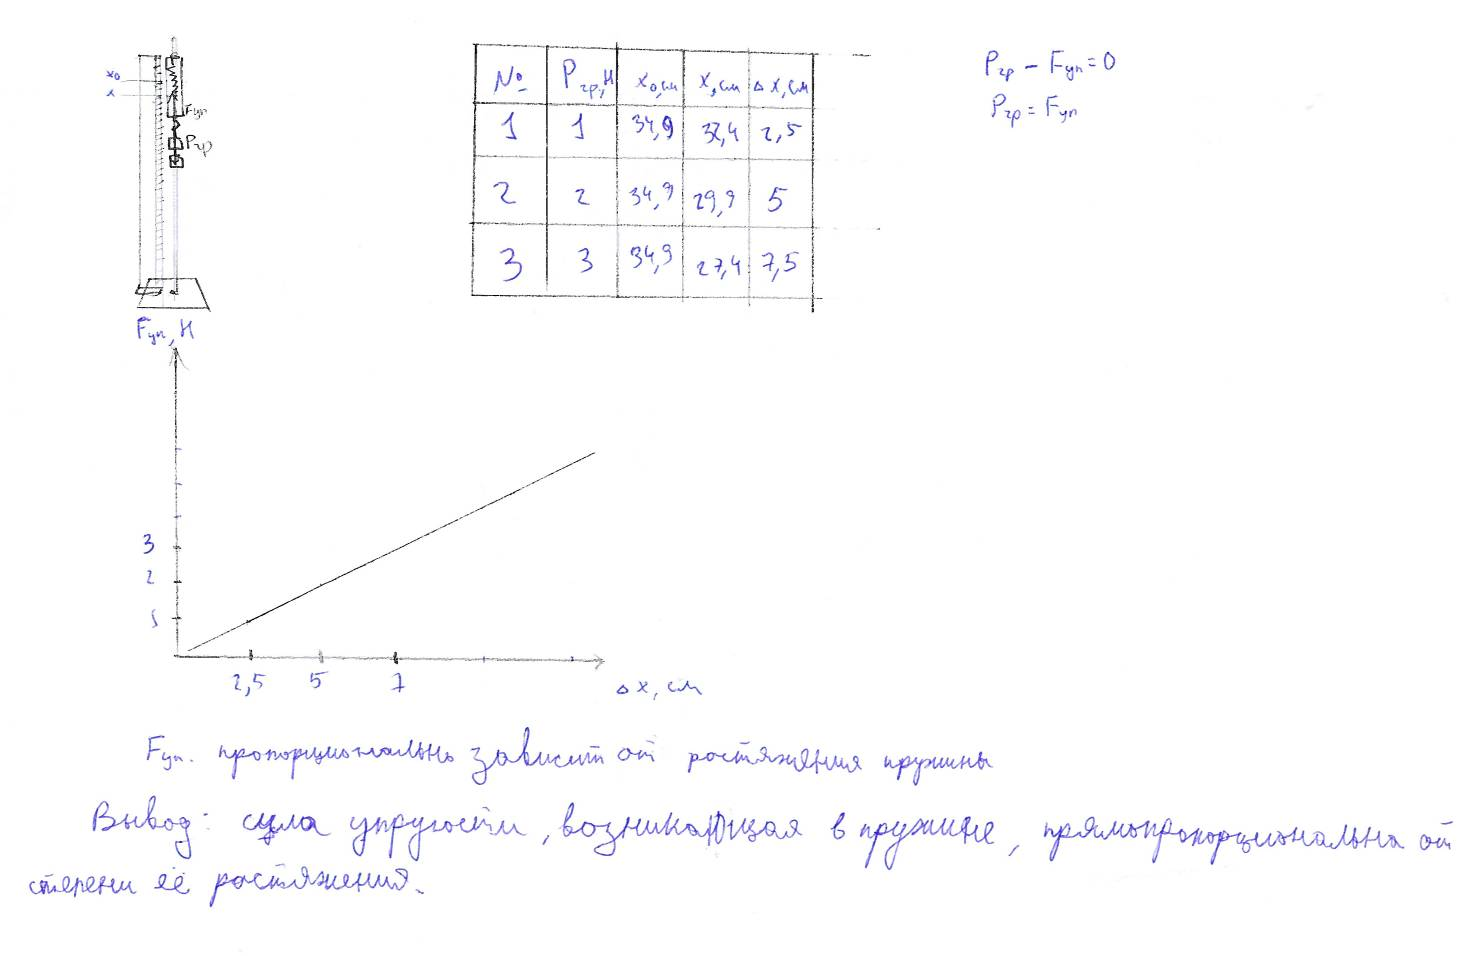 x₀
x
Fуп
Pгр
№ Pгр, Н x₀, см x, см Δx, см
1 1 34,9 32,4 2,5
2 2 34,9 29,9 5
3 3 34,9 27,4 7,5
Pгр - Fуп = 0
Pгр = Fуп
Fуп, Н
3
2
1
2,5 5 7 Δx, см
Fуп. пропорционально зависит от растяжения пружины
Вывод: сила упругости, возникающая в пружине, прямопропорциональна от
степени её растяжения.